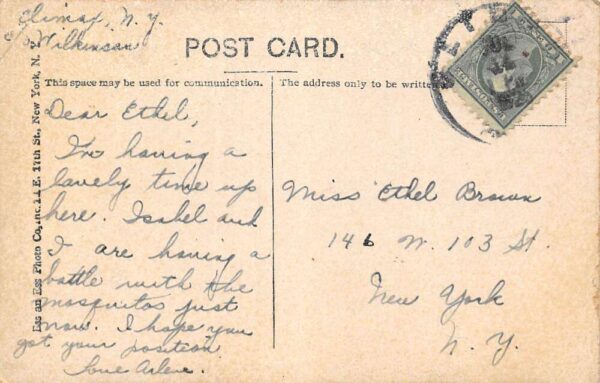 Climax, N. Y.
% Wilkinson
POST CARD.
This space may be used for communication.
The address only to be written
Ess an Ess Photo Co., Inc. 114 E. 17th St., New York, N.
Dear Ethel,
I'm having a
lovely time up
here. Isabel and
I are having a
battle with the
mosquitos just
now. I hope you
got your position.
Love Arlene.
Miss Ethel Brown
146 W. 103 St.
New York
N. Y.